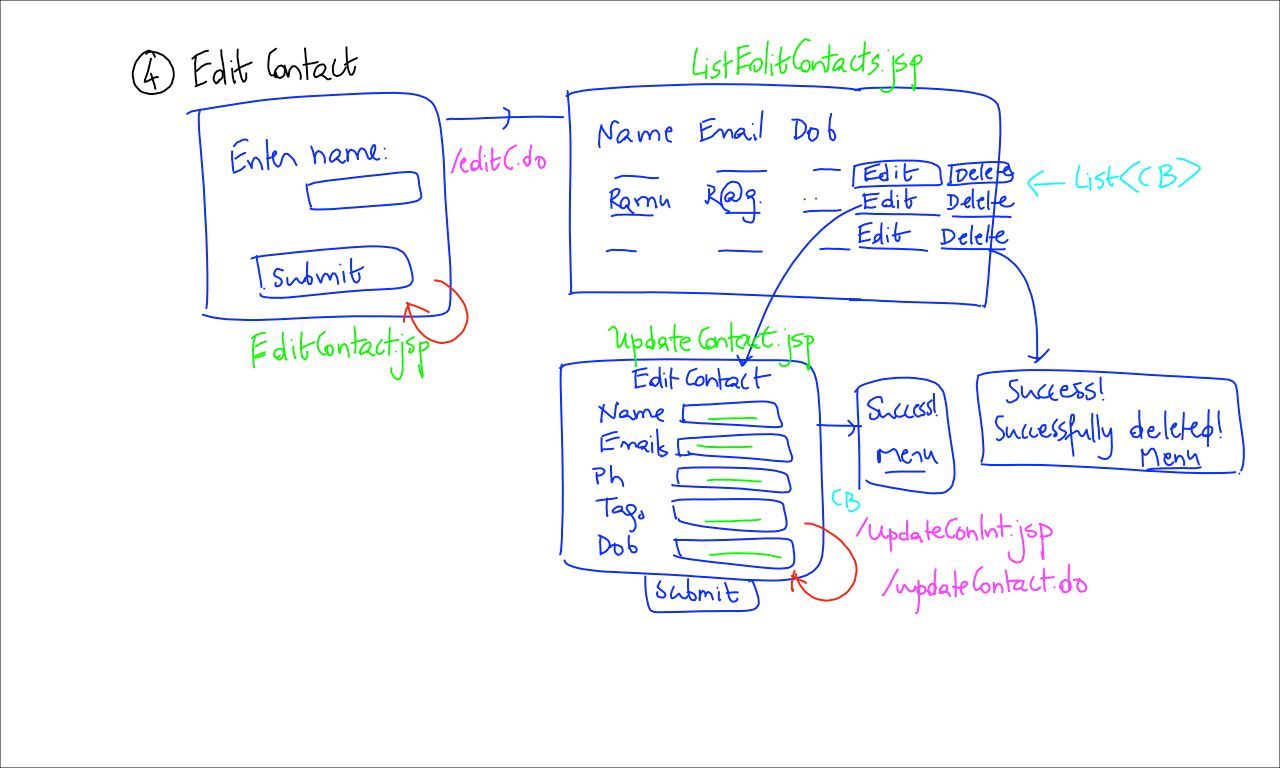 ④ Edit Contact
Enter name:
Submit
EditContact.jsp
/editC.do
ListEditContacts.jsp
Name Email Dob
Edit Delete
Ramu R@g. .. Edit Delete
Edit Delete
← List<CB>
UpdateContact.jsp
Edit Contact
Name
Emails
Ph
Tags
Dob
Submit
Success!
Menu
CB
/updateConInt.jsp
/updateContact.do
Success!
Successfully deleted!
Menu